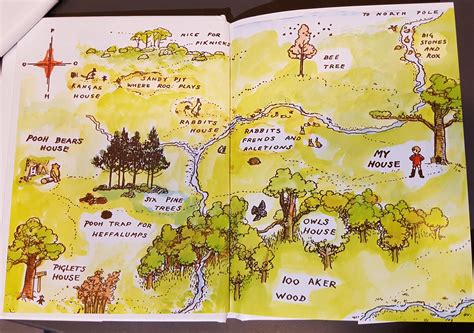 NICE FOR
PIKNICKS
SANDY PIT
WHERE ROO PLAYS
KANGAS
HOUSE
RABBITS
HOUSE
POOH BEARS
HOUSE
SIX PINE
TREES
POOH TRAP FOR
HEFFALUMPS
PIGLETS
HOUSE
TO NORTH POLE
BIG
STONES
AND
ROX
BEE
TREE
RABBITS
FRENDS AND
RALETIONS
MY
HOUSE
OWLS
HOUSE
100 AKER
WOOD